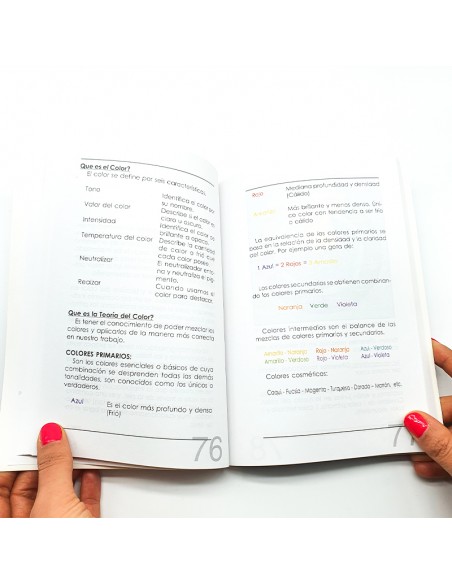 Que es el Color?
El color se define por seis características:
Tono Identifica el color por
su nombre.
Valor del color Describe si el color es
claro u oscuro.
Intensidad Identifica el color si es
brillante o opaco.
Temperatura del color Describe la cantidad
de calor o frío que
cada color posee.
Neutralizar El neutralizador
y neutraliza el
mento.
Realzar Cuando usamos el
color para destacar.
Que es la Teoría del Color?
Es tener el conocimiento de poder mezclar los
colores y aplicarlos de la manera más correcta
en nuestro trabajo.
COLORES PRIMARIOS:
Son los colores esenciales o básicos de cuya
combinación se desprenden todas las demás
tonalidades, son conocidos como los únicos o
verdaderos.
Azul Es el color más profundo y denso
(Frío)
76
Rojo Mediana profundidad y densidad
(Cálido)
Amarillo Más brillante y menos denso. Úni-
co color con tendencia a ser frío
o cálido
La equivalencia de los colores primarios se
basa en la relación de la densidad y la claridad
del color. Por ejemplo una gota de:
1 Azul = 2 Rojos =
Los colores secundarios se obtienen combinan-
do los colores primarios.
Naranja Verde Violeta
Colores intermedios son el balance de las
mezclas de colores primarios y secundarios.
Amarillo - Naranja Rojo - Naranja Azul - Verdoso
Amarillo - Verdoso Rojo - Violeta Azul - Violeta
Colores cosméticos:
Caqui - Fucsia - Magenta - Turquesa - Dorado - Marrón, etc.
77